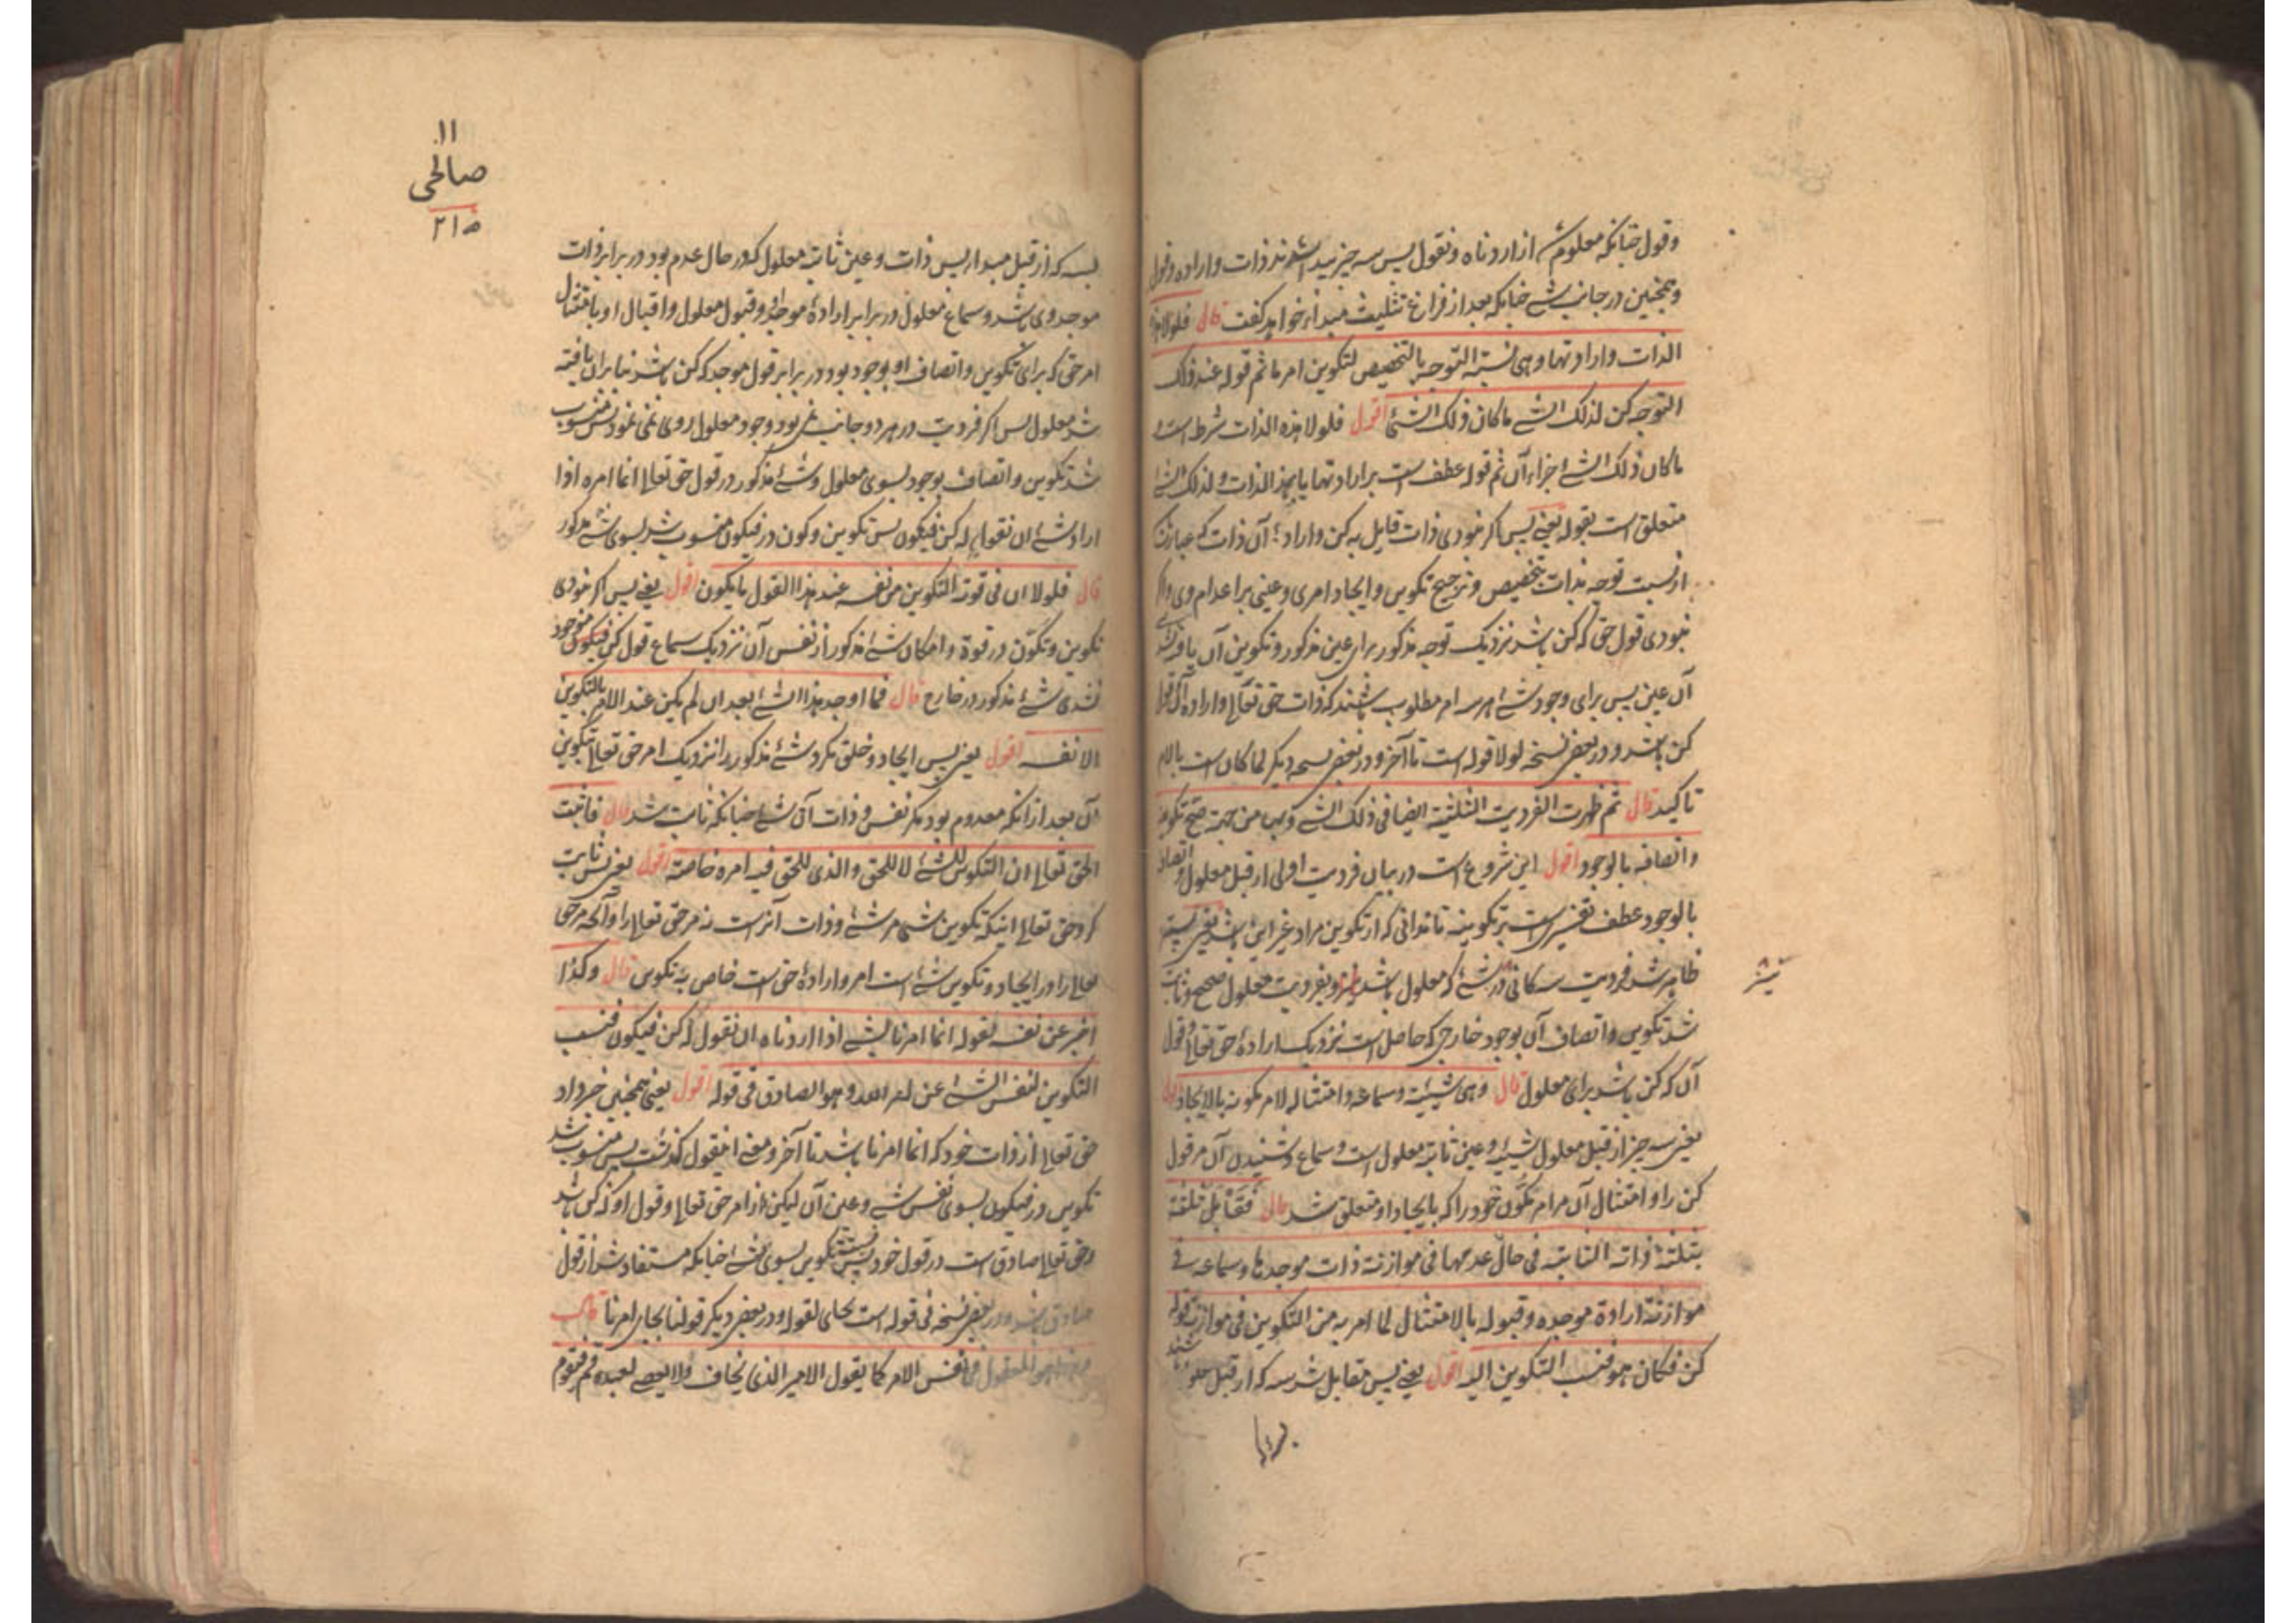 وقول چنانکه معلوم شد از اردناه ونقول پس سه چیز پیدا شدند ذات واراده وقول
وهمچنین در جانب شئ چنانکه بعد از فراغ تثلیث مبدا خواهد گفت قال فلولا هذه
الذات وارادتها وهی نسبة التوجه بالتخصیص لتکوین امر ما ثم قوله عند ذلک
التوجه کن لذلک الشئ ما کان ذلک الشئ اقول فلولا هذه الذات شرط است و
ما کان ذلک الشئ اجزاء آن ثم قوله عطف است بر ارادتها یا بهذه الذات ولذلک الشئ
متعلق است بقوله یعنی پس اگر نبودی ذات قایل به کن واراده آن ذات که عبارتست
از نسبت توجه بذات بتخصیص وترجیح تکوین وایجاد امری وعینی بر اعدام وی واگر
نبودی قول حق که کن باشد نزدیک توجه مذکور برای عین مذکور وتکوین آن یافته نشد
آن عین پس برای وجود شئ هر سه ام مطلوب باشند که ذات حق تعالی واراده آن وقول
کن باشد ودر بعض نسخه لولا قوله است تا آخر ودر بعض نسخه دیگر لما کان است بالام
تاکید قال ثم ظهرت الفردیت الثلثیة ایضا فی ذلک الشئ وبها من جهته صح تکوینه
واتصافه بالوجود اقول این شروع است در بیان فردیت اولی از قبل معلول واتصافه
بالوجود عطف تفسیری است بر تکوینه تا ندانی که از تکوین مراد غیر این باشد یعنی پستر
پستر
ظاهر شد فردیت سه کانی در شئ که معلول باشد نیز وبفردیت معلول صحیح وثابت
شد تکوین واتصاف آن بوجود خارجی که حاصل است نزدیک اراده حق تعالی وقول
آن که کن باشد برای معلول قال وهی شیئیته وسماعه وامتثاله لامر مکونه بالایجاد اقول
یعنی سه چیز از قبل معلول شیئیة وعین ثابته معلول است وسماع وشنیدن آن مر قول
کن را وامتثال آن مر امر مکون خود را که بایجاد او متعلق شد قال فقابل ثلثة
بثلثة ذاته الثابتة فی حال عدمها فی موازنة ذات موجدها وسماعه فی
موازنة ارادة موجده وقبوله بالامتثال لما امر به من التکوین فی موازنة قوله
کن فکان هو فنسب التکوین الیه اقول یعنی پس مقابل شد سه که از قبل معلول باشند
بسه که
۱۱
صالحی
۲۱۵
بسه که از قبل مبدا پس ذات وعین ثابت معلول که در حال عدم بود در برابر ذات
موجد وی باشد وسماع معلول در برابر اراده موجد وقبول معلول واقبال او بامتثال
امر حق که برای تکوین واتصاف او بوجود بود در برابر قول موجد که کن باشد بنا بران یافته
شد معلول پس اگر فردیت در هر دو جانب نمی بود وجود معلول روی نمی نمود پس منسوب
شد تکوین واتصاف بوجود بسوی معلول وشئ مذکور در قول حق تعالی انما امره اذا
اراد شئ ان نقول له کن فیکون پس تکوین وکون در فیکون منسوب شد بسوی شئ مذکور
قال فلولا ان فی قوته التکوین من نفسه عند هذا القول ما یکون اقول یعنی پس اگر نبودی
تکوین وتکون در قوة وامکان شئ مذکور از نفس آن نزدیک سماع قول کن فیکون موجود
نشدی شئ مذکور در خارج قال فما اوجد هذا الشئ بعد ان لم یکن عند الامر بالتکوین
الا نفسه اقول یعنی پس ایجاد وخلق نکرد شئ مذکور را نزدیک امر حق تعالی بتکوین
آن بعد از انکه معدوم بود مگر نفس وذات آن شئ چنانکه ثابت شد قال فاثبت
الحق تعالی ان التکوین للشئ لا للحق والذی للحق فیه امره خاصة اقول یعنی پس ثابت
کرد حق تعالی اینکه تکوین شئ مر شئ وذات آنراست نه مر حق تعالی را وآنچه مر حق
تعالی را در ایجاد وتکوین شئ است امر واراده حق است خاص به تکوین قال وکذا
اخبر عن نفسه بقوله انما امرنا لشئ اذا اردناه ان نقول له کن فیکون فنسب
التکوین لنفس الشئ عن امر الله وهو الصادق فی قوله اقول یعنی همچنین خبر داد
حق تعالی از ذات خود که انما امرنا باشد تا آخر ومعنی این قول گذشت پس منسوب شد
تکوین در فیکون بسوی نفس شئ وعین آن لیکن از امر حق تعالی وقول او که کن باشد
وحق تعالی صادق است در قول خود پس نسبت تکوین بسوی شئ چنانکه مستفاد شد از قول
صادق باشد ودر بعض نسخه فی قوله است بجای لقوله ودر بعض دیگر قولنا بجای امرنا قال
وهذا هو المعقول فی نفس الامر کما یقول الامیر الذی یخاف ولا یعصی لعبده قم فیقوم